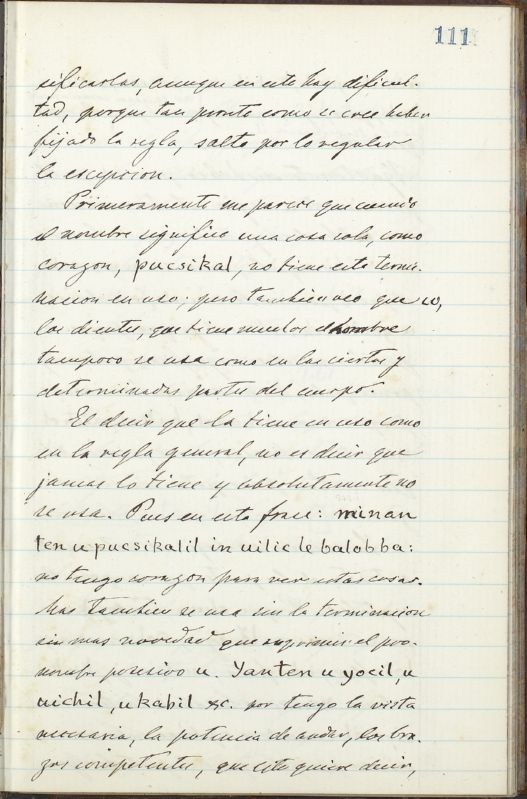 111
sificarlas, aunque en esto hay dificul-
tad, porque tan pronto como se cree haber
fijado la regla, salta por lo regular
la escepcion.
Primeramente me parece que cuando
el nombre significa una cosa sola, como
corazon, pucsikal, no tiene esta termi-
nacion en uso; pero tambien veo que co,
los dientes, que tiene muchos el hombre
tampoco se usa como en las ciertas y
determinadas partes del cuerpo.
El decir que la tiene en uso como
en la regla general, no es decir que
jamas lo tiene y absolutamente no
se usa. Pues en esta frase: minan
ten u pucsikalil in uilic le balobba:
no tengo corazon para ver estas cosas.
Mas tambien se usa sin la terminacion
sin mas novedad que suprimir el pro-
nombre posesivo u. Yanten u yocil, u
uichil, u kabil &c. por tengo la vista
necesaria, la potencia de andar, los bra-
zos competentes, que esto quiere decir,